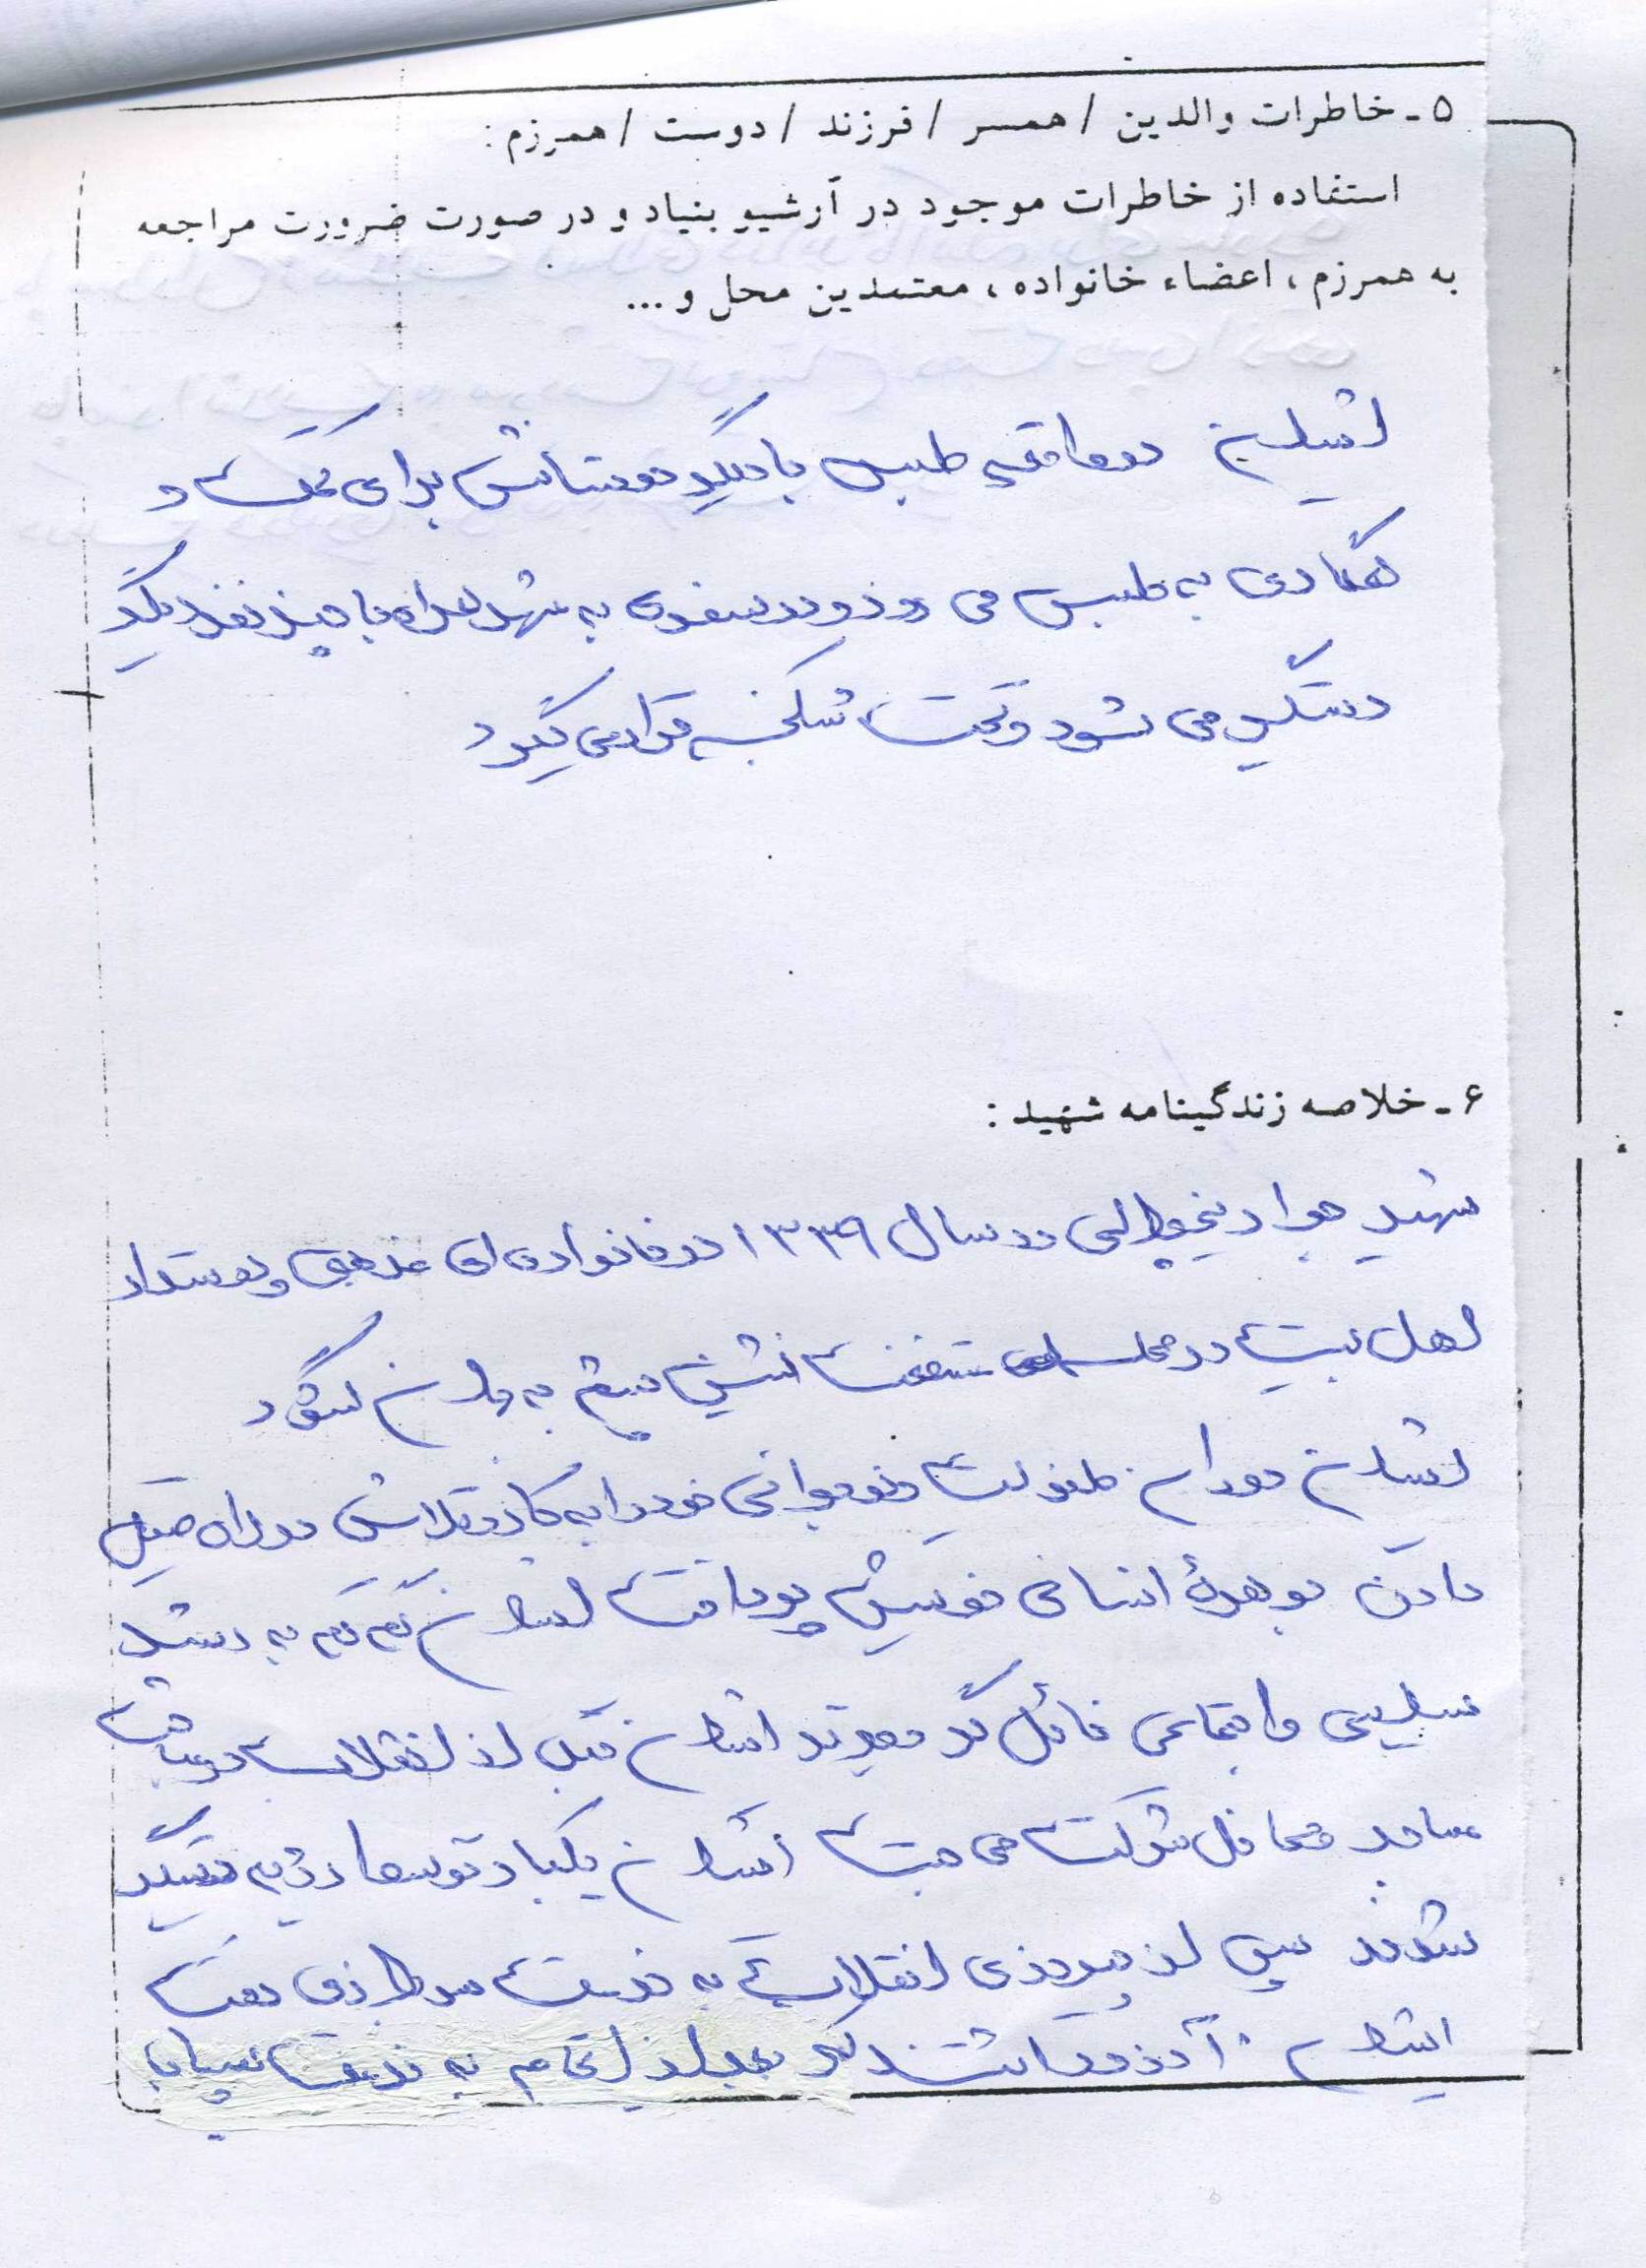 ۵ - خاطرات والدین / همسر / فرزند / دوست / همرزم :
استفاده از خاطرات موجود در آرشیو بنیاد و در صورت ضرورت مراجعه
به همرزم ، اعضاء خانواده ، معتمدین محل و ...
ایشان در واقعه طبس با دیگر دوستانش برای کمک و
همکاری به طبس می رود و در سفری به شهر همراه با چند نفر دیگر
دستگیر می شود و تحت شکنجه قرار می گیرد
۶ - خلاصه زندگینامه شهید :
شهید جواد در سال ۱۳۳۹ در خانواده ای مذهبی و دوستدار
اهل بیت در چشم به جهان گشود
ایشان دوران طفولیت و نوجوانی خود را به کار و تلاش در راه صیقل
دادن جوهره انسانی خویش پرداخت ایشان کم کم به رشد
سیاسی و اجتماعی نائل گردیدند ایشان قبل از انقلاب در
مساجد و محافل شرکت می جست ایشان یکبار توسط رژیم دستگیر
شدند پس از پیروزی انقلاب به خدمت سربازی رفت
ایشان آرزو داشتند که بعد از اتمام به خدمت سپاه